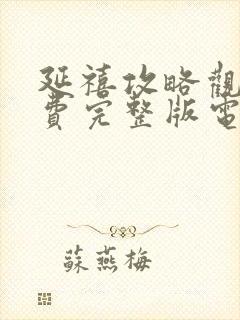 延禧攻略觀
費完整版電
蘇燕梅